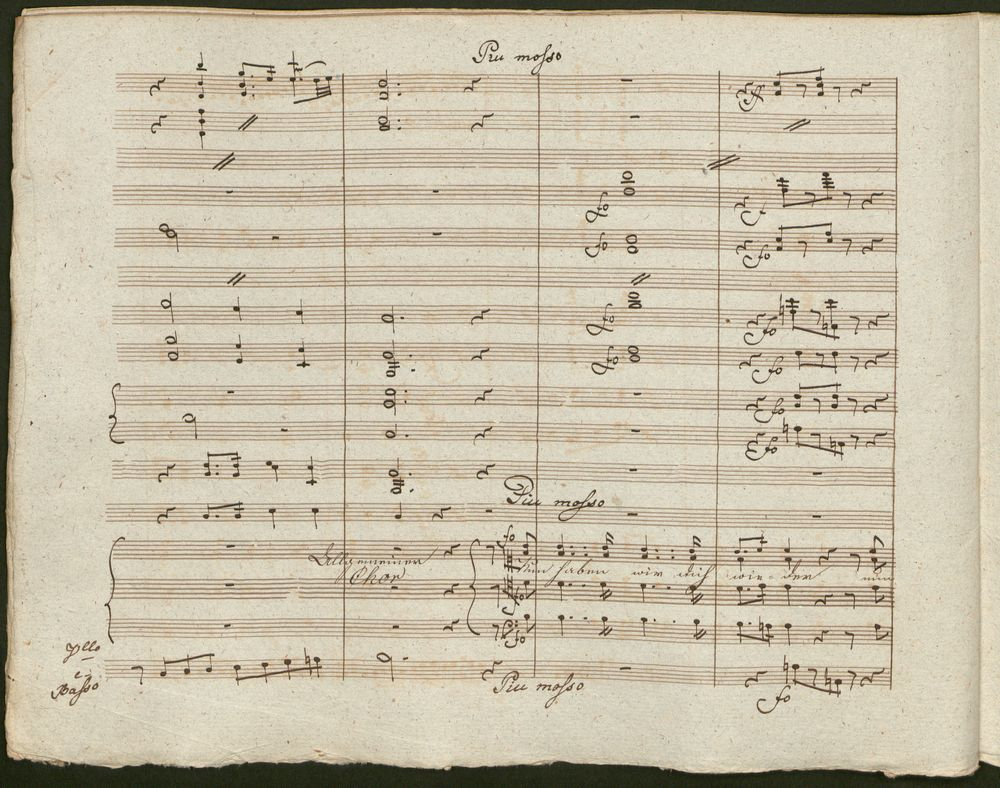 Piu mosso
fo
fo
fo
fo
fo
fo
fo
fo
fo
Piu mosso
fo
Allgemeiner
Chor
Nun haben wir dich wie der nun
fo
fo
Vllo
e
Basso
Piu mosso
fo